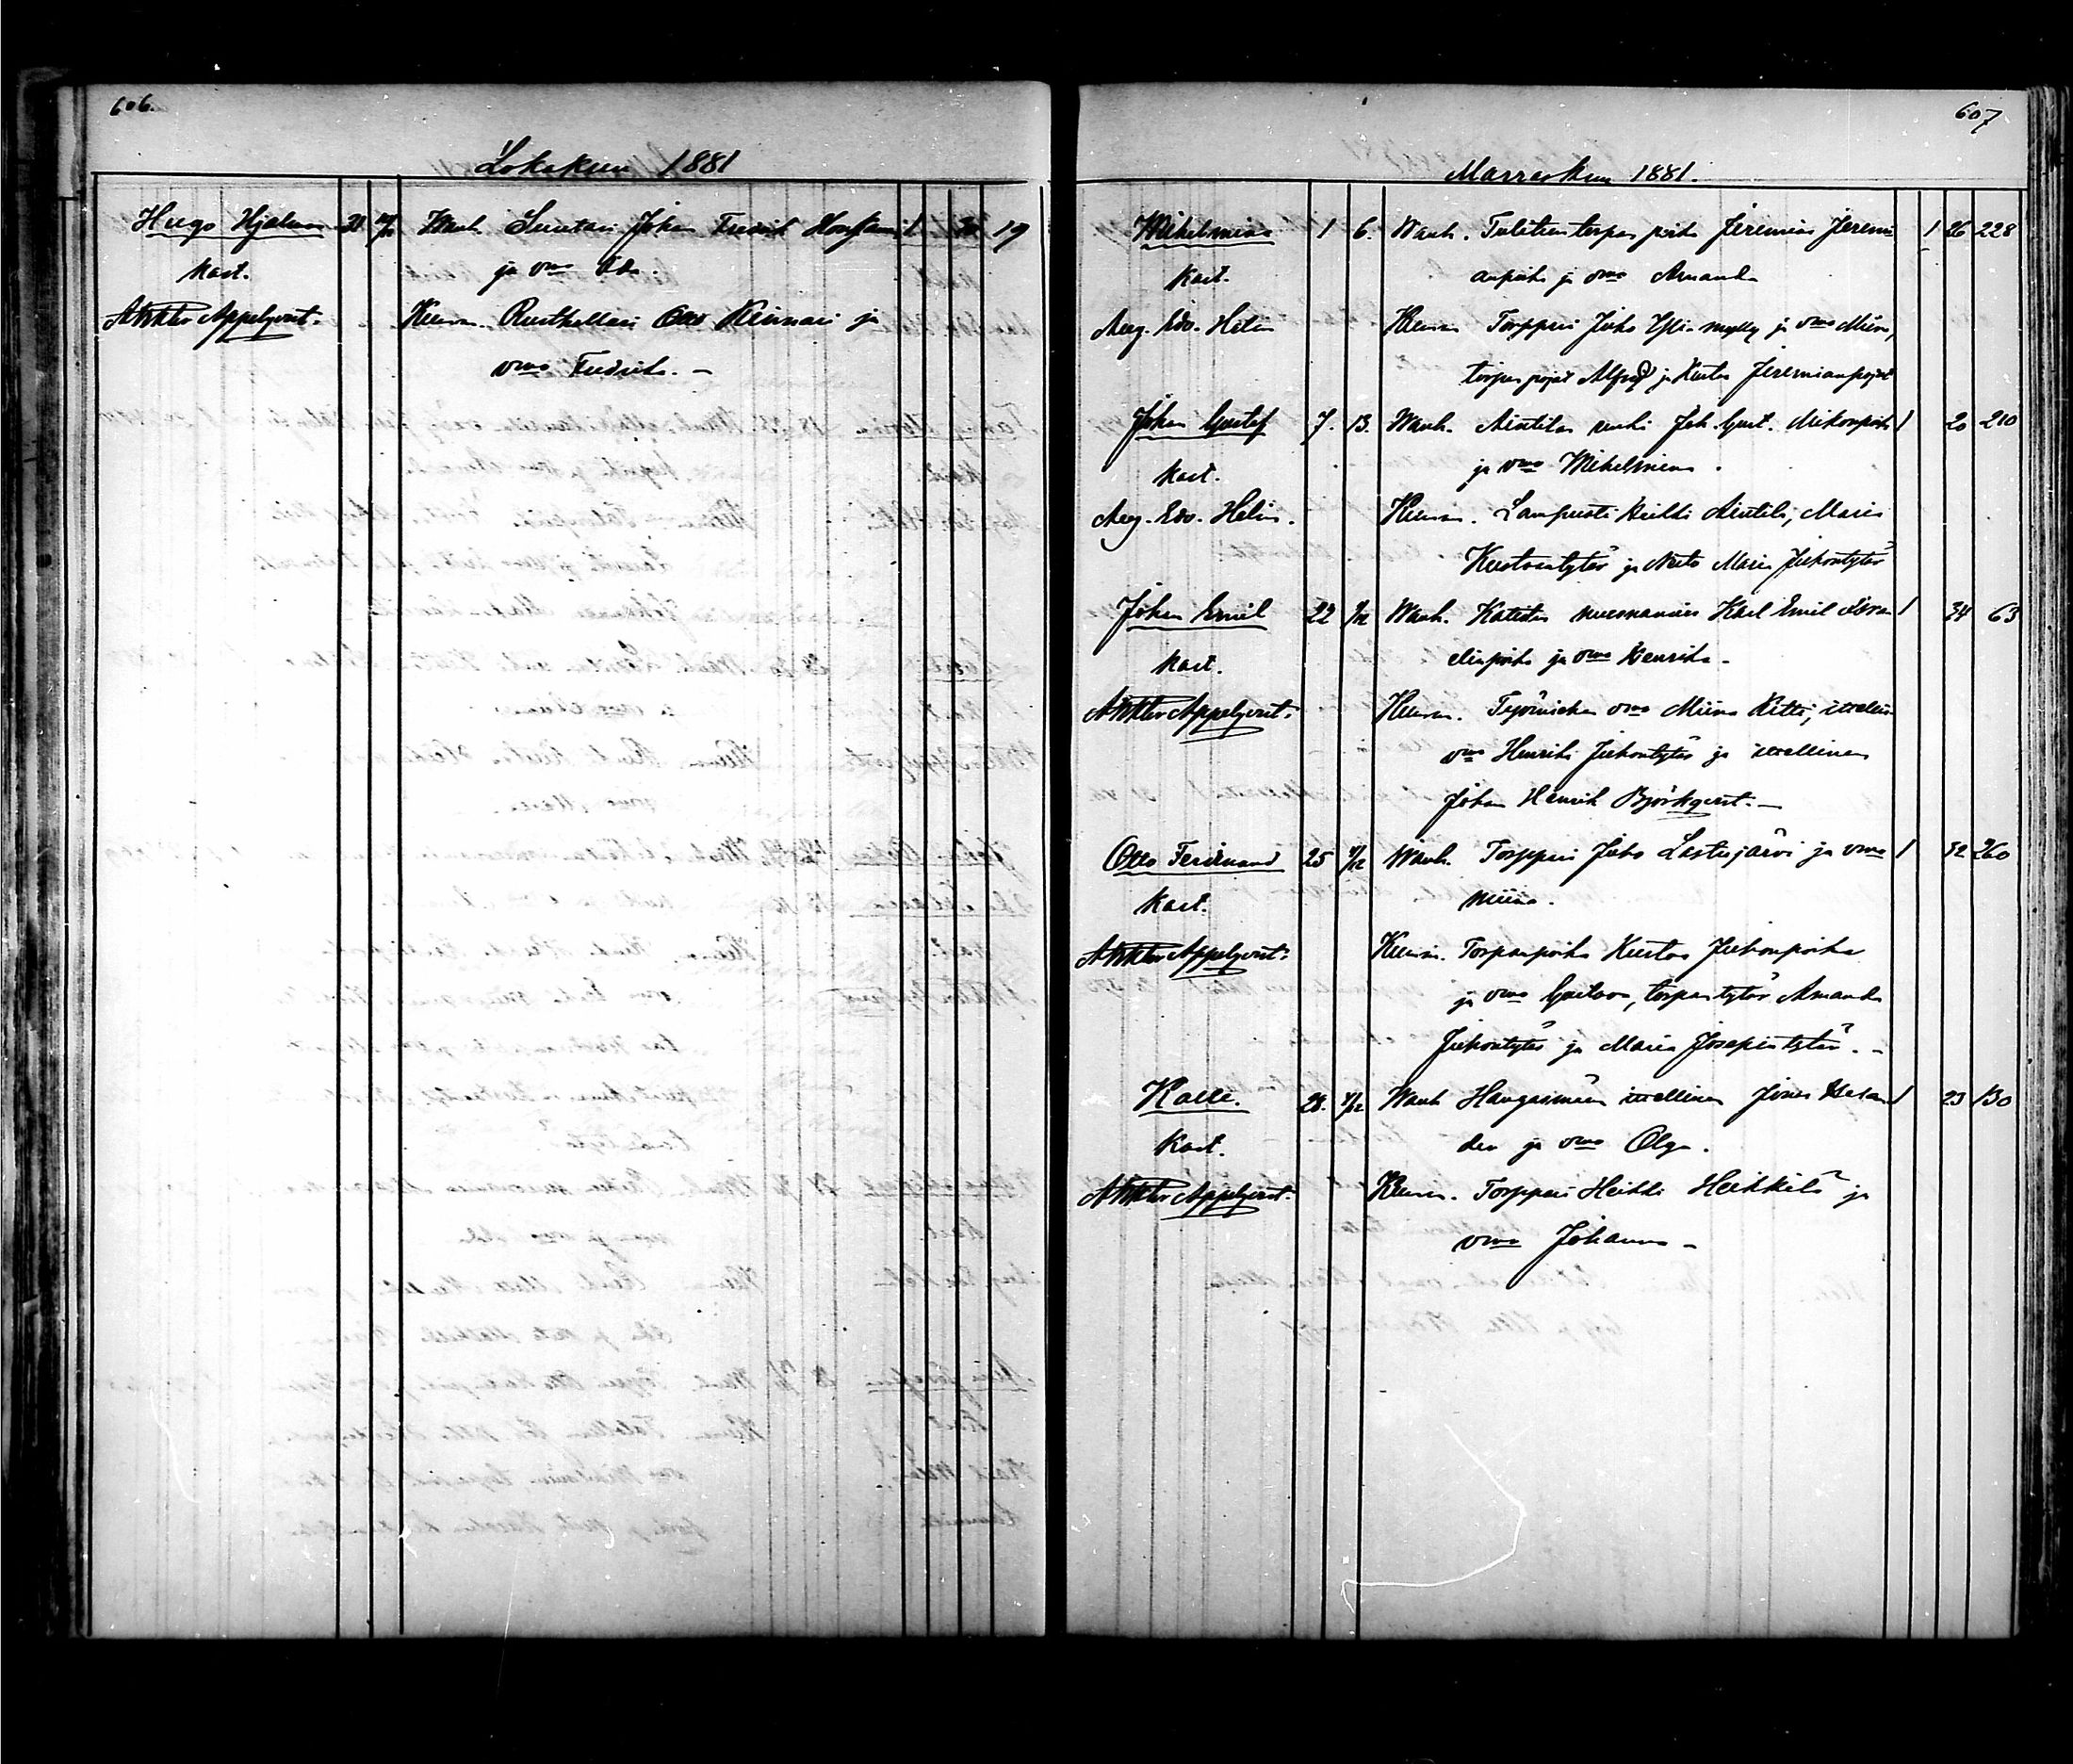 606.
Lokakuu 1881
Hugo Hjalmar 31 Wanh. Suutari Johan Fredrik 1 19
kast. ja vmo Ida.
A Wikter Appelqvist. Kumm. Rusthollari Otto Keinnari ja
vmo Fredrika. —
607
Marraskuu 1881.
Wilhelmina 1 6. Wanh. torpan poika Jeremias Jeremi 1 26 228
kast. anpoika ja vmo Amanda
Aug. Edv. Helin Kumm Torppari Juho Yli-mylly ja vmo Miina,
torpan pojat Alfred ja Kustaa Jeremianpojat
Johan Gustaf 7. 13. Wanh. Anttilan renki Joh. Gust. Mikonpoika 1 20 210
kast. ja vmo Wilhelmina.
Aug. Edv. Helin. Kumm. Lampuoti Heikki Anttila, Maria
Kustaantytär ja Neito Maria Juhontytär
Johan Emil 22 4/12 Wanh. Karl Emil 1 34 63
kast. ja vmo Henrika.
A Wikter Appelqvist. Kumm. vmo Miina itsellis-
vmo Henrika Juhontytär ja itsellinen
Johan Henrik Björkqvist. —
Otto Ferdinand 25 4/12 Wanh. Torppari Juho Lastujärvi ja vmo 1 32 260
kast. Miina.
A Wikter Appelqvist. Kumm. Torpanpoika Kustaa Juhonpoika
ja vmo Gustava, torpan tytär Amanda
Juhontytär ja Maria Josepintytär. —
Kalle. 28. 4/12 Wanh itsellinen Jonas 1 23 130
kast. der ja vmo Olga.
A Wikter Appelqvist. Kumm. Torppari Heikki Heikkilä ja
vmo Johanna —